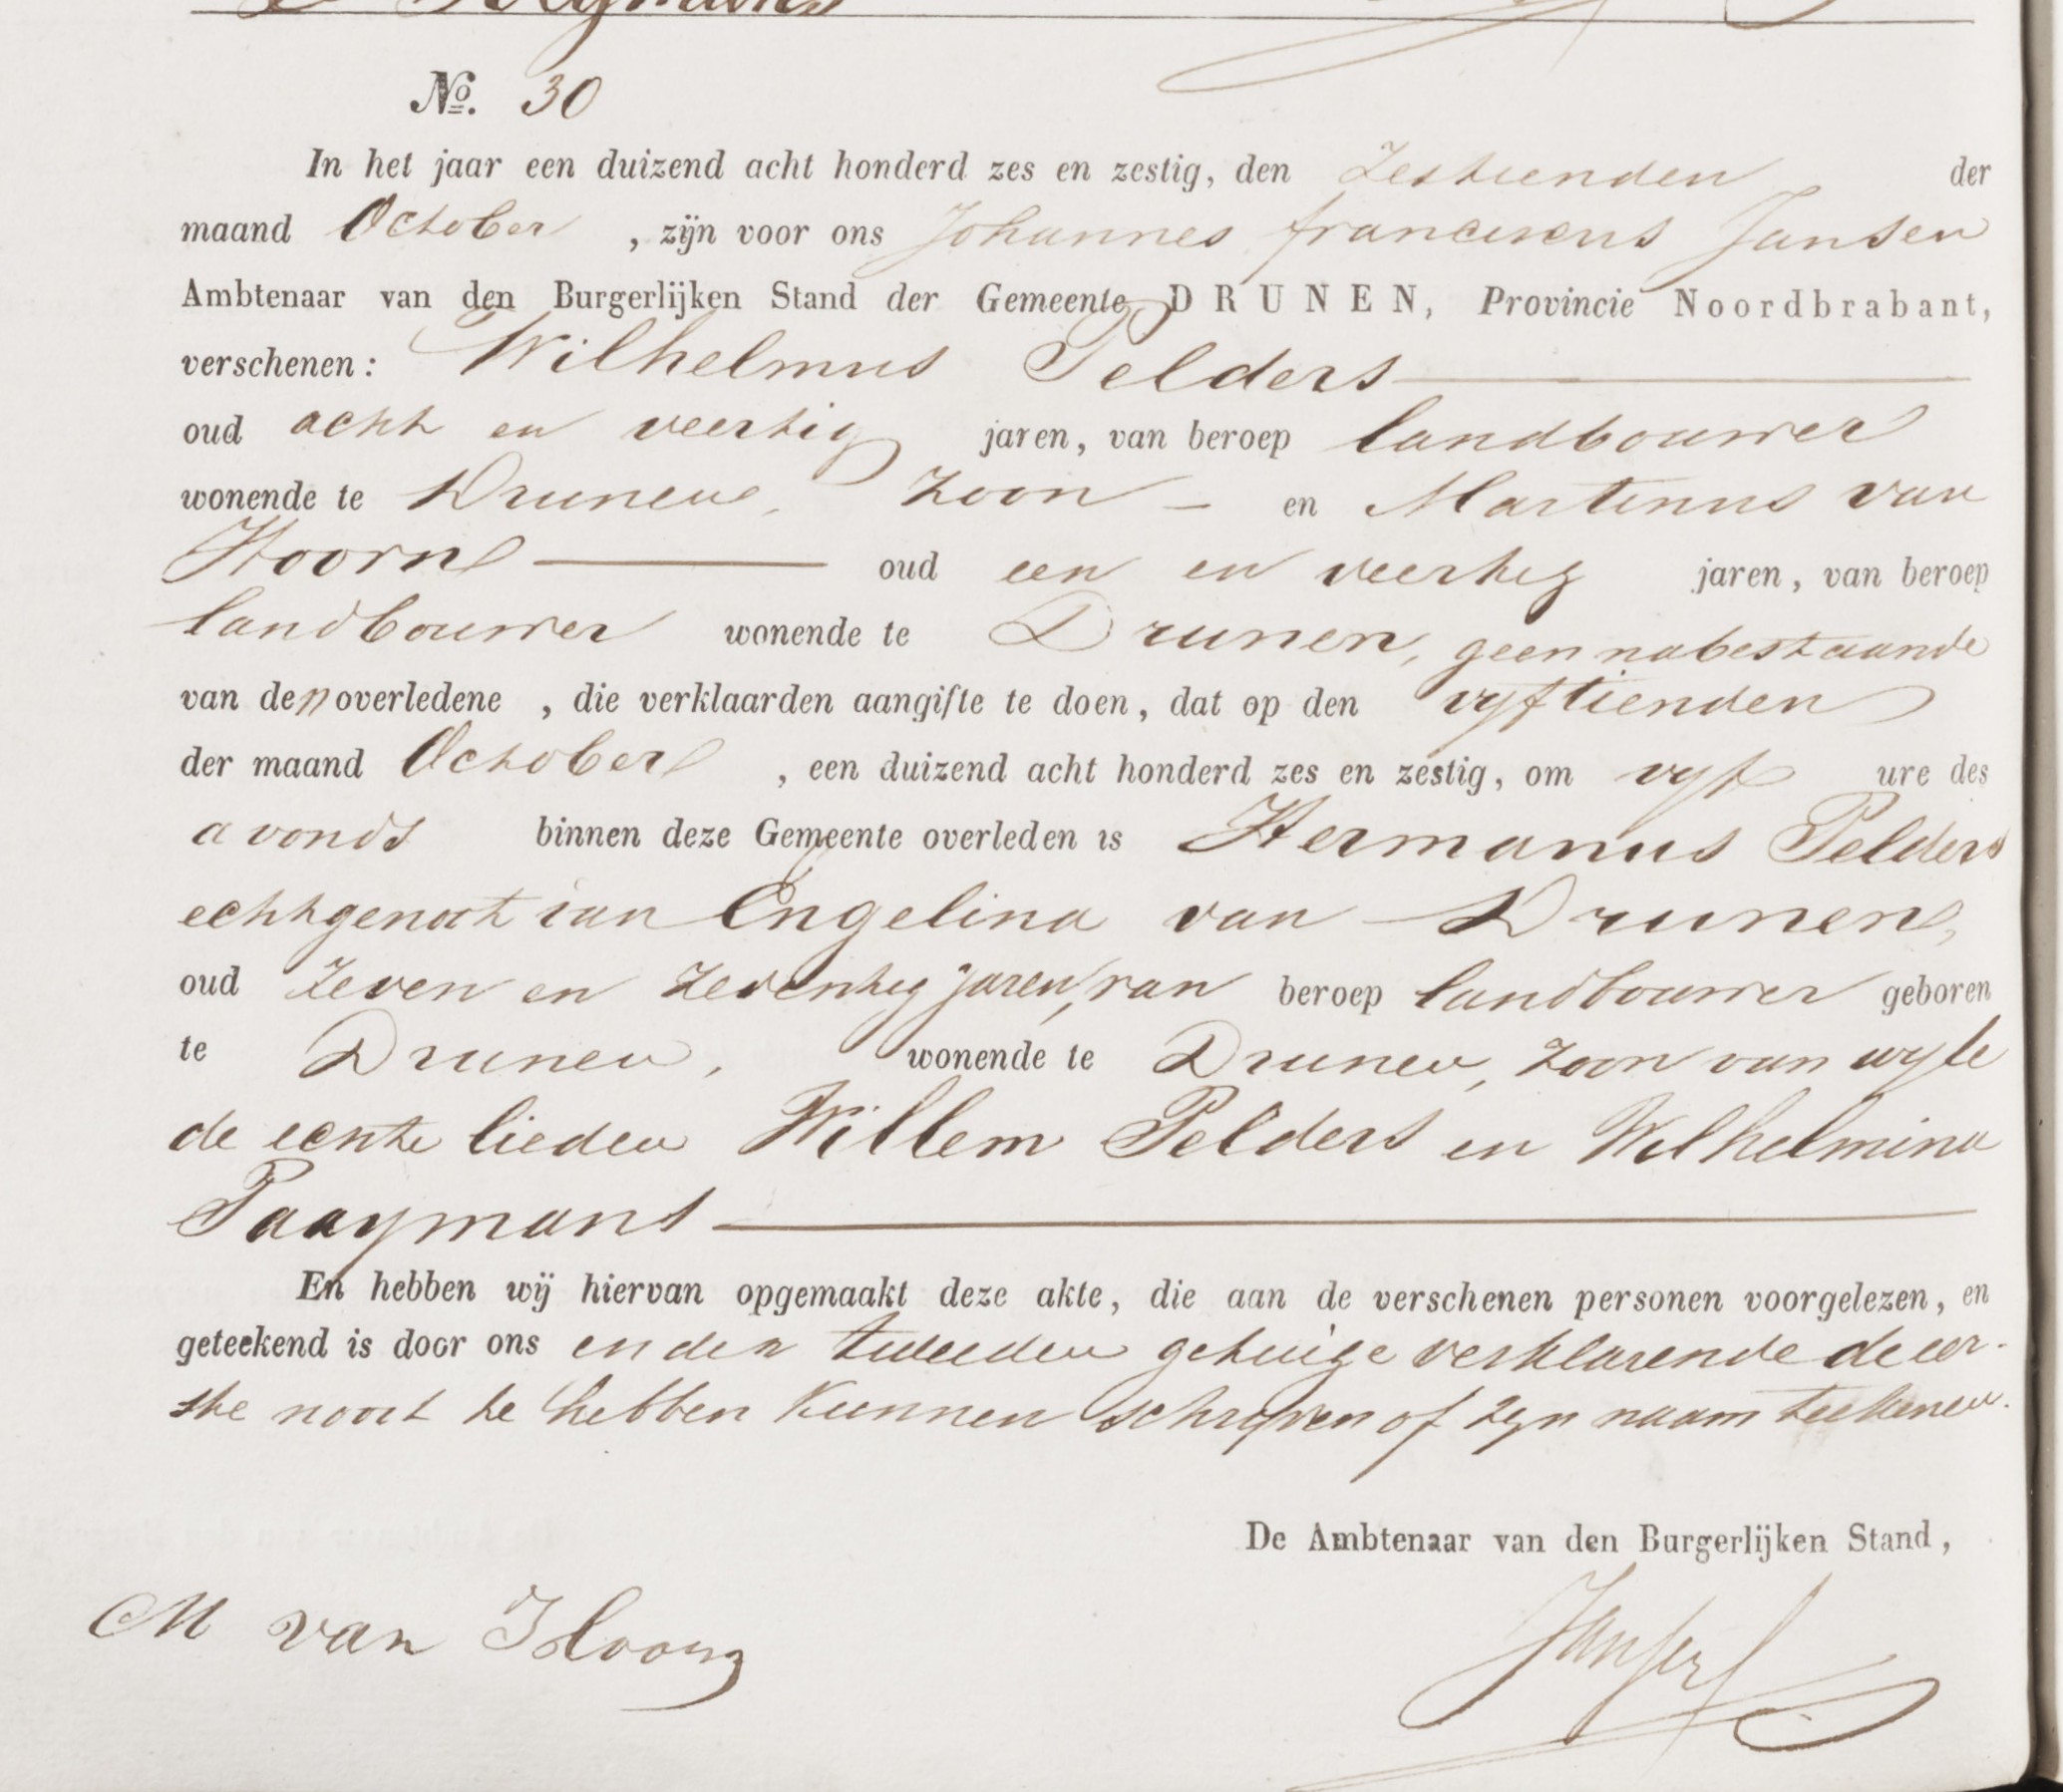 No. 30
In het jaar een duizend acht honderd zes en zestig, den zestienden der
maand October, zijn voor ons Johannes franciscus Jansen
Ambtenaar van den Burgerlijken Stand der Gemeente DRUNEN, Provincie Noordbrabant,
verschenen: Wilhelmus Pelders
oud acht en veertig jaren, van beroep landbouwer
wonende te Drunen, zoon - en Martinus van
Hoorn oud een en veertig jaren, van beroep
landbouwer wonende te Drunen, geen nabestaande
van den overledene, die verklaarden aangifte te doen, dat op den vyftienden
der maand October, een duizend acht honderd zes en zestig, om vyf ure des
avonds binnen deze Gemeente overleden is Hermanus Pelders
echtgenoot van Engelina van Drunen,
oud zeven en zeventig jaren, van beroep landbouwer geboren
te Drunen, wonende te Drunen, zoon van wyle
de echte lieden Willem Pelders en Wilhelmina
Paaymans
En hebben wij hiervan opgemaakt deze akte, die aan de verschenen personen voorgelezen, en
geteekend is door ons en den tweeden getuige verklarende de eer-
ste nooit te hebben kunnen schryven of zyn naam teekenen.
De Ambtenaar van den Burgerlijken Stand,
M van Hoorn
Jansen